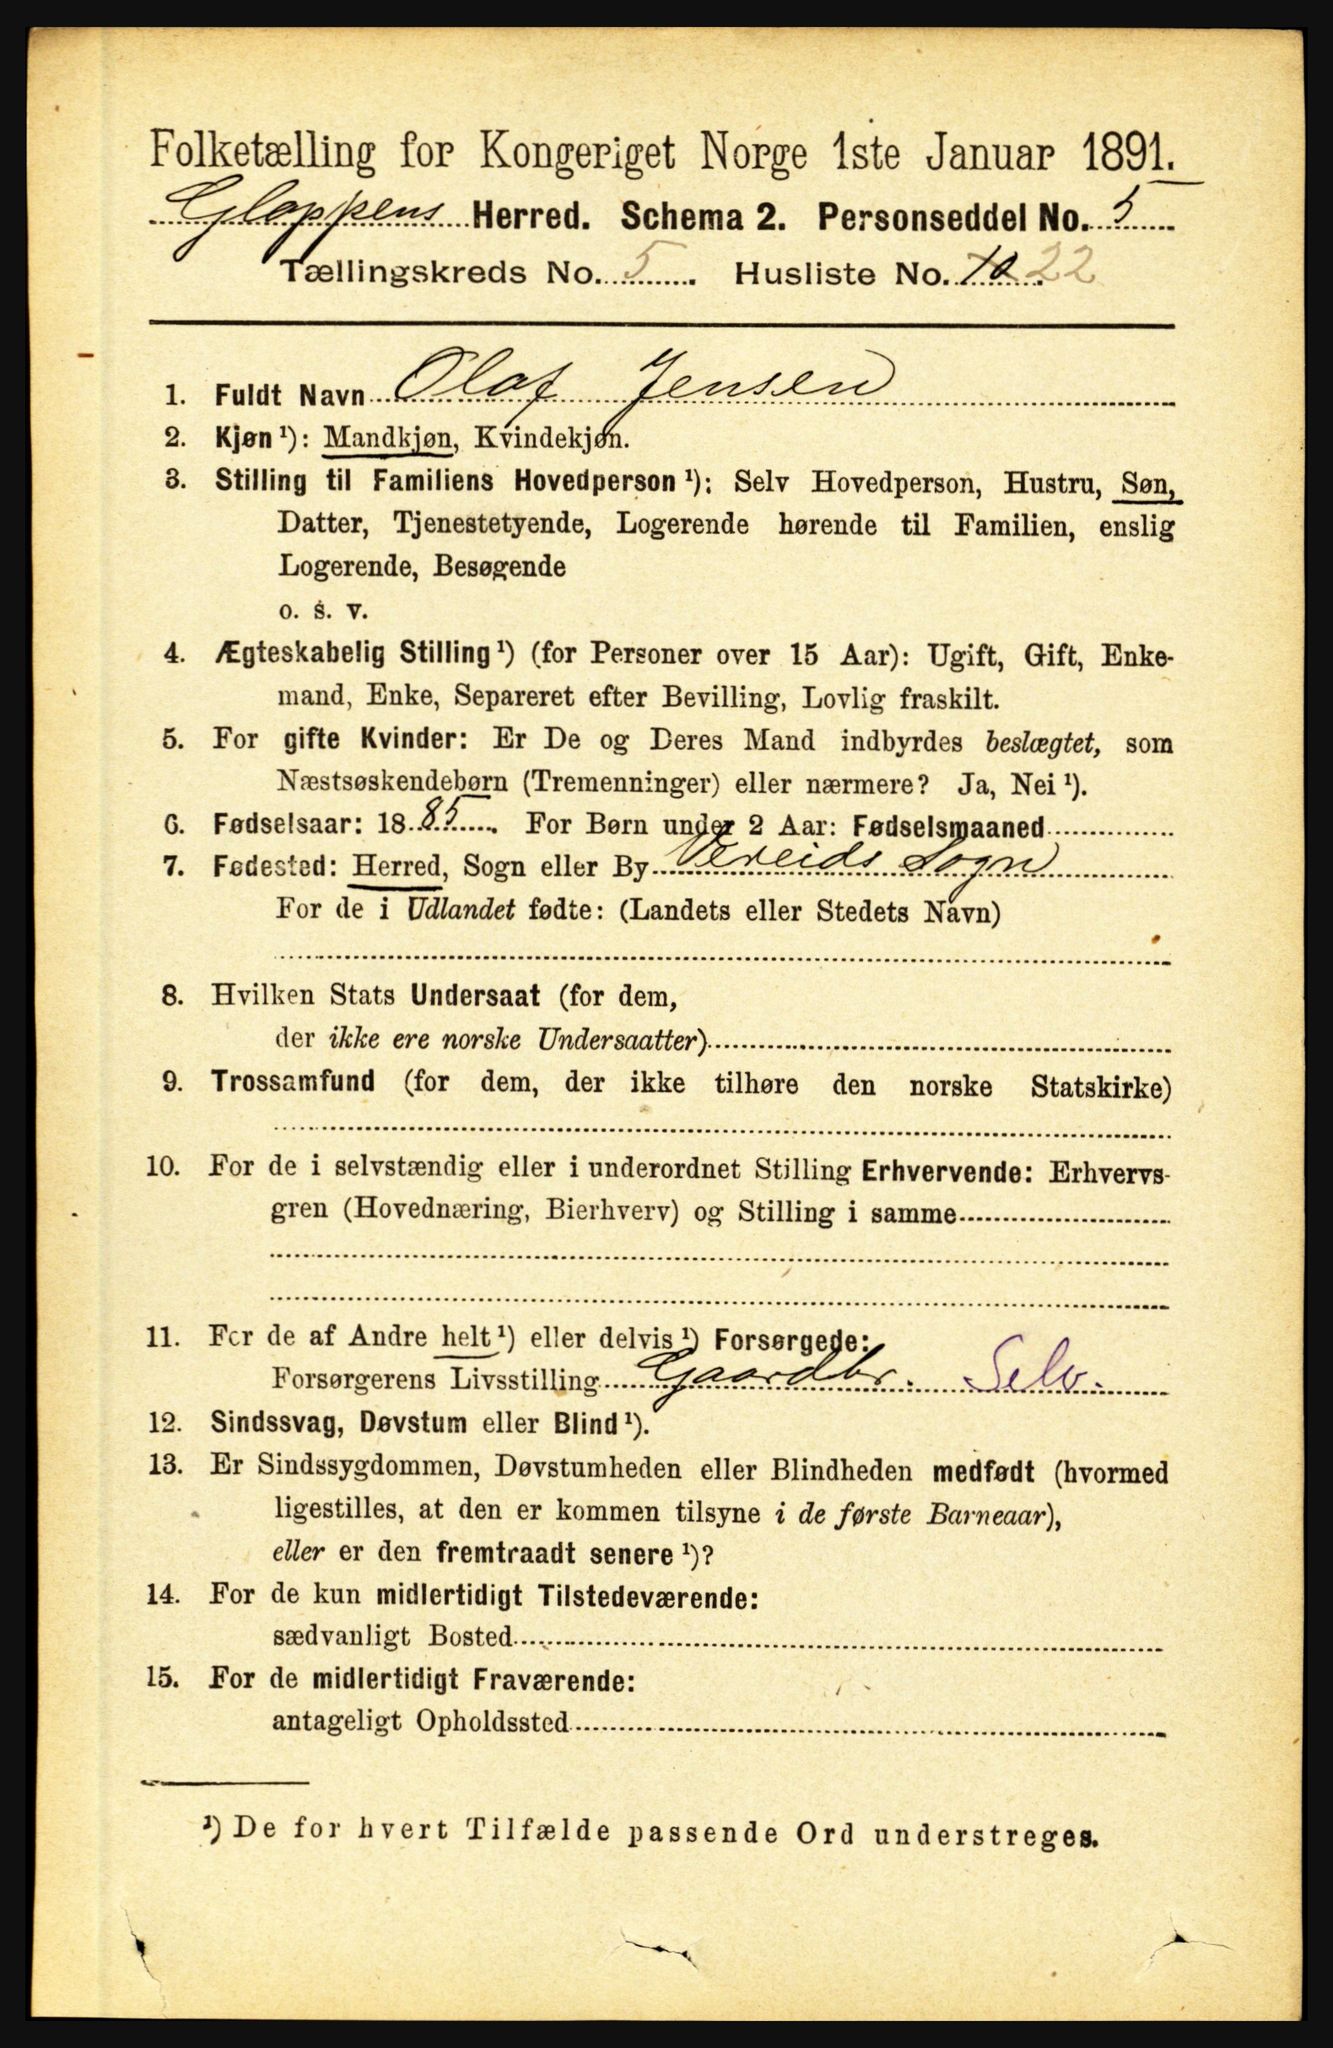 Folketælling for Kongeriget Norge 1ste Januar 1891.
Gloppens Herred. Schema 2. Personseddel No. 5
Tællingskreds No. 5. Husliste No. 10 22
1. Fuldt Navn Olaf Jensen
2. Kjøn ¹): Mandkjøn, Kvindekjøn.
3. Stilling til Familiens Hovedperson ¹): Selv Hovedperson, Hustru, Søn,
Datter, Tjenestetyende, Logerende hørende til Familien, enslig
Logerende, Besøgende
o. s. v.
4. Ægteskabelig Stilling ¹) (for Personer over 15 Aar): Ugift, Gift, Enke-
mand, Enke, Separeret efter Bevilling, Lovlig fraskilt.
5. For gifte Kvinder: Er De og Deres Mand indbyrdes beslægtet, som
Næstsøskendebørn (Tremenninger) eller nærmere? Ja, Nei ¹).
6. Fødselsaar: 1885. For Børn under 2 Aar: Fødselsmaaned
7. Fødested: Herred, Sogn eller By Vereids Sogn
For de i Udlandet fødte: (Landets eller Stedets Navn)
8. Hvilken Stats Undersaat (for dem,
der ikke ere norske Undersaatter)
9. Trossamfund (for dem, der ikke tilhøre den norske Statskirke)
10. For de i selvstændig eller i underordnet Stilling Erhvervende: Erhvervs-
gren (Hovednæring, Bierhverv) og Stilling i samme
11. For de af Andre helt ¹) eller delvis ¹) Forsørgede:
Forsørgerens Livsstilling Gaardbr. Selv.
12. Sindssvag, Døvstum eller Blind ¹).
13. Er Sindssygdommen, Døvstumheden eller Blindheden medfødt (hvormed
ligestilles, at den er kommen tilsyne i de første Barneaar),
eller er den fremtraadt senere ¹)?
14. For de kun midlertidigt Tilstedeværende:
sædvanligt Bosted
15. For de midlertidigt Fraværende:
antageligt Opholdssted
¹) De for hvert Tilfælde passende Ord understreges.